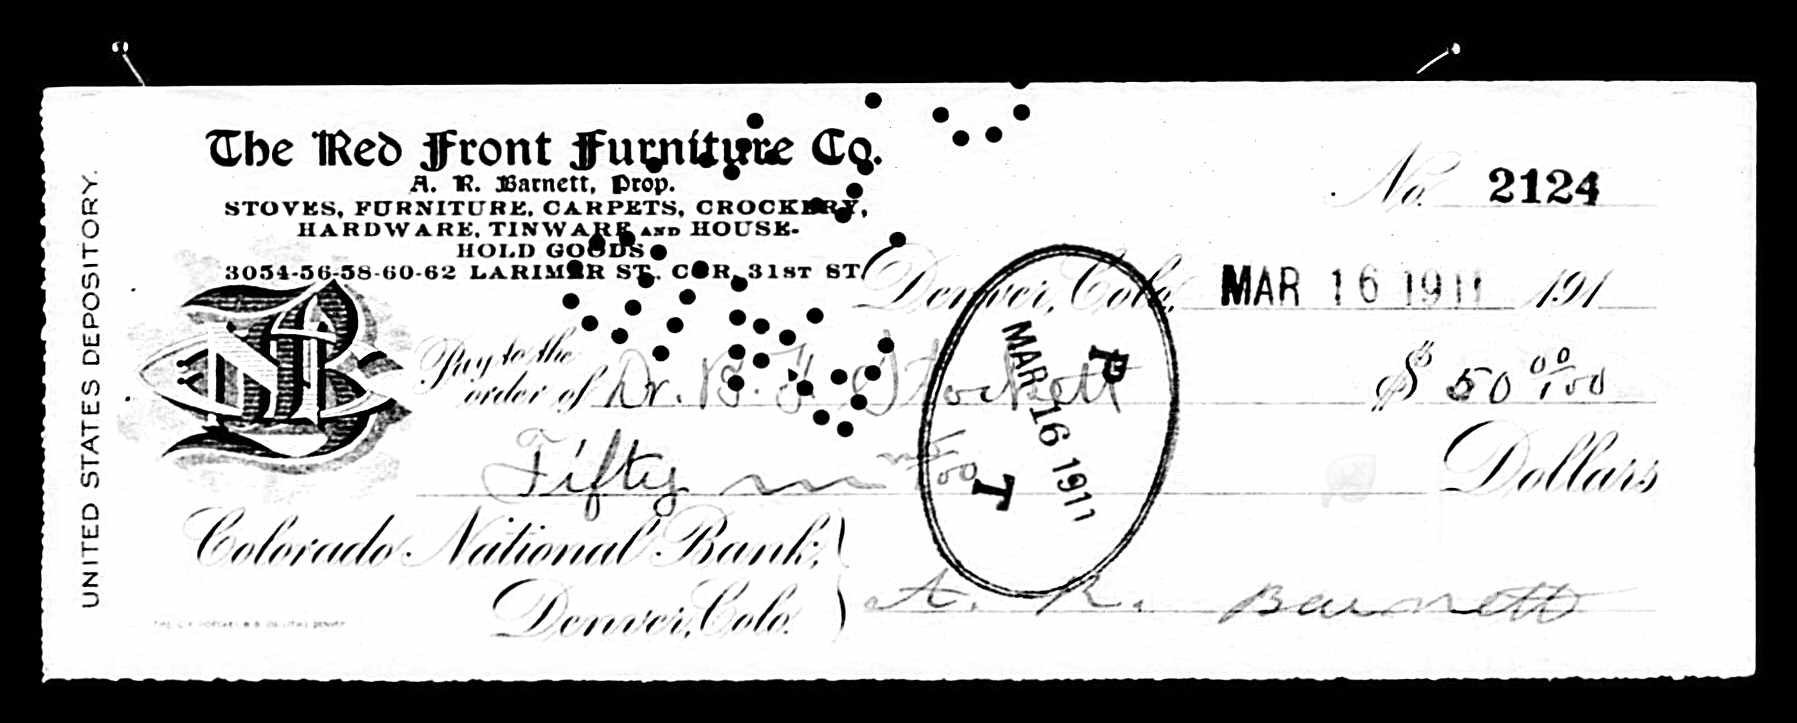 UNITED STATES DEPOSITORY.
The Red Front Furniture Co.
A. R. Barnett, Prop.
STOVES, FURNITURE, CARPETS, CROCKERY,
HARDWARE, TINWARE AND HOUSE-
HOLD GOODS
3054-56-58-60-62 LARIMER ST. COR. 31ST ST.
No. 2124
Denver, Colo. MAR 16 1911 191
Pay to the
order of Dr. B. F. Stockett $ 50 00/100
Fifty no/100 Dollars
P
MAR 16 1911
T
Colorado National Bank,
Denver, Colo.
A. R. Barnett